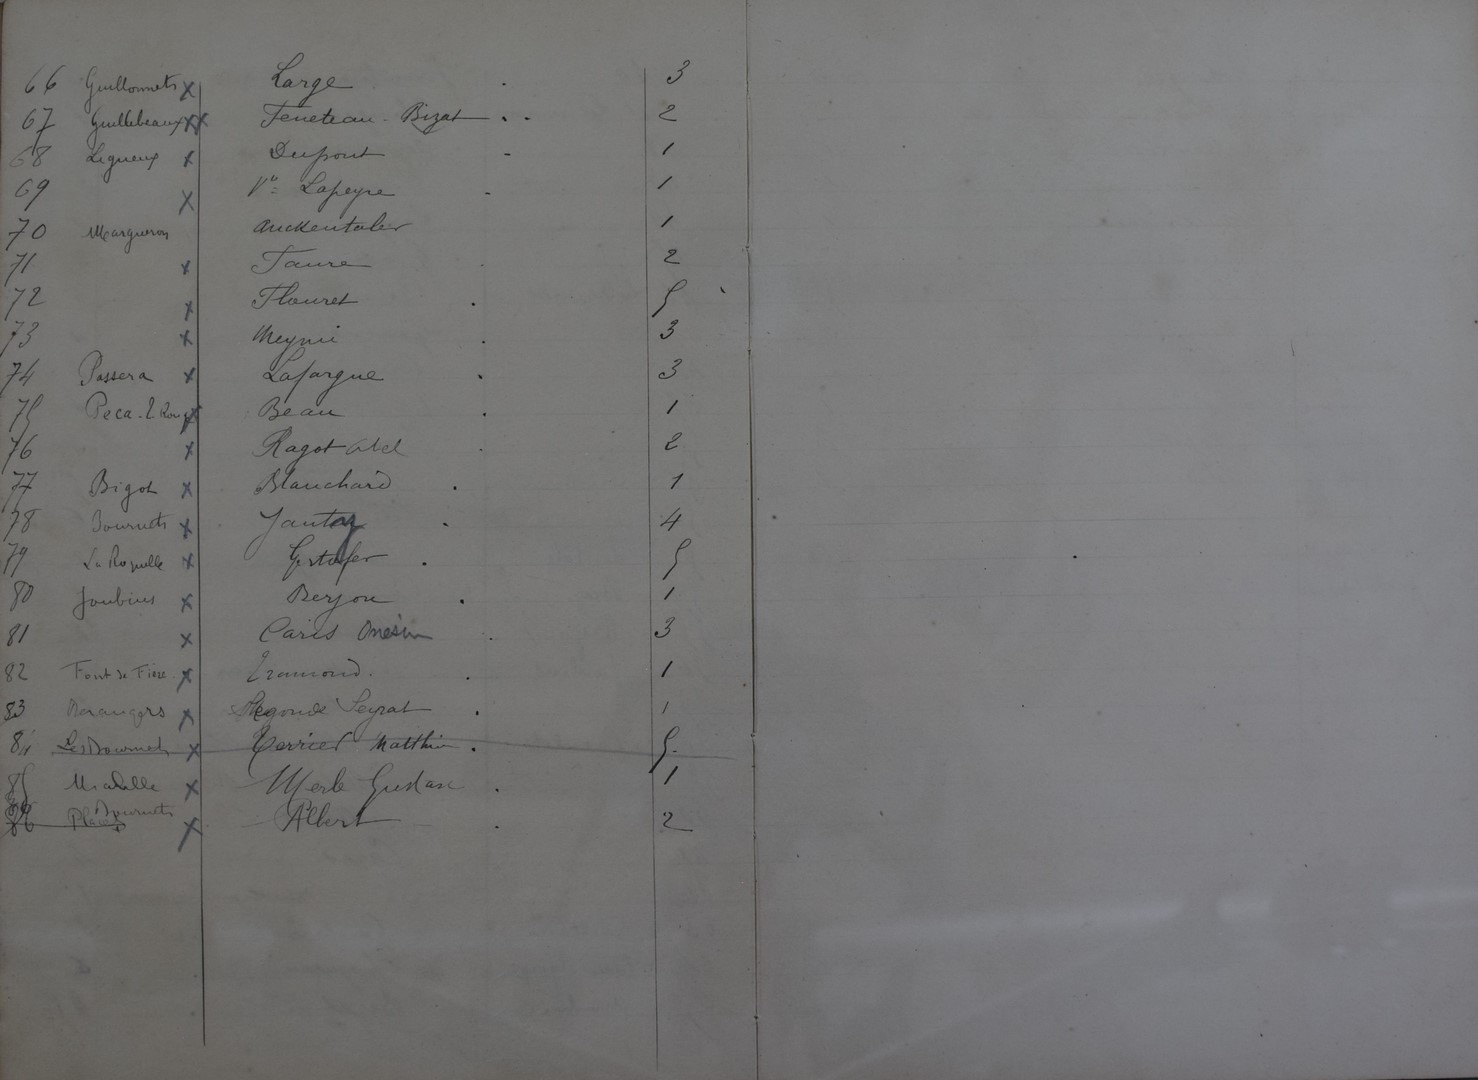 66 Guillonnets x Large . 3
67 Guillebeaux xx Feneteau - Bizat . . 2
68 Ligueux x Dupont - 1
69 x Vve Lapeyre - 1
70 Margueron Auckentaler 1
71 x Faure . 2
72 x Flouret . 5
73 x Meynie . 3
74 Passera x Lafargue . 3
75 x Beau . 1
76 x Ragot Abel . 2
77 Bigot x Blanchard . 1
78 Bournets x Jantay . 4
79 La Roquille x . 5
80 Joubins x Berjon . 1
81 x Caris Onésim . 3
82 Font de x Eramond . 1
83 Bérangers x Segonde Seyrat . 1
84 Les Bournets x Terrier Matthieu . 5
85 x Merle Gustave . 1
86 Bournets x Albert . 2